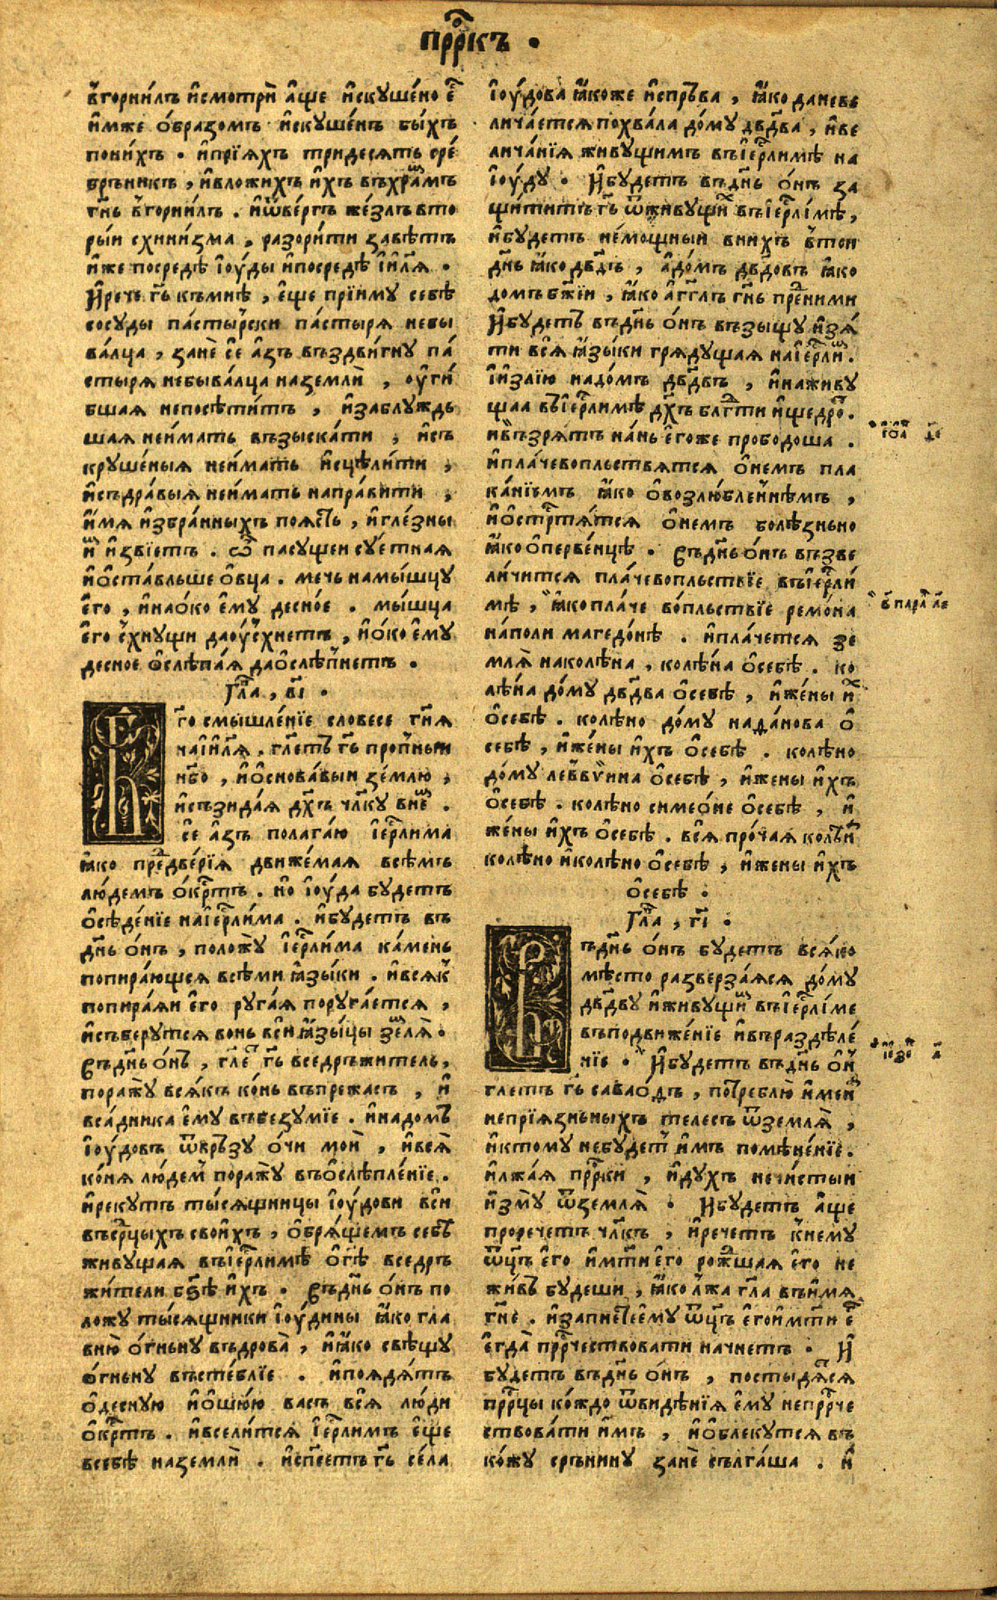 прⷪ҇ркъ .
в̾горни́лъ и҆смотрѝ а҆ще и҆скуше́но є҆сть
и҆мже ѻ҆́бразомъ и҆скуше́нъ бы́хъ
пони́хъ . и҆прїѧ́хъ тридесѧть сре́
брьникъ , и҆вложихъ и҆́хъ въхра́мъ
гн҃ь в̾горни́лъ . и҆ѿве́ргъ же́злъ вто
ры́и схини́зма , разори́ти завѣ́тъ
и҆же посредѣ̀ і҆ю́ды и҆посредѣ̀ і҆и҃лѧ .
И҆рече гь҃ къмнѣ̀ , є҆ще прїиму себѣ̀
сосуды па́стырски па́стырѧ небы
ва́лца , занѐ се̏ а҆́зъ въздви́гну па́
стырѧ небыва́лца наземлѝ , ѹ҆ги́
бшаѧ непосѣти́тъ , и҆заблу́ждь
шаѧ неи́мать възыска́ти , и҆съ
круше́ныѧ неи́мать и҆сцѣли́ти ,
и҆съдра́выѧ неи́мать напра́вити ,
и҆мѧ̀ и҆збра́нныхъ поѧ́сть , и҆гле́зны
и҆х̾ и҆звїе́тъ . ѽ пасущеи сѹетнаѧ
и҆ѡ҆ста́вльше ѻ҆вца̀ . мечь намы́шцу
є҆го̀ , и҆наѻ́ко є҆му десно́е . мы́шца
є҆го̀ ѹ҆схнущи даѹ́схнетъ , и҆ѻ́ко є҆му̀
десное ѻ҆слѣпа́ѧ даѻ҆слѣ́пнетъ .
Гла , в҃і .
Е҆го смышле́нїе словесе гн҃ѧ
наі҆и҃лѧ . гл҃етъ гь҃ пропны́и
нб҃о , и҆ѻ҆снова́выи зе́млю ,
и҆съзида́ѧ дх҃ъ чл҃ку вне́мъ .
се̏ а҆́зъ полага́ю і҆ерⷭ҇лима
ꙗ҆ко предве́рїѧ движе́маѧ всѣ́мъ
лю́демъ ѻ҆́крⷭ҇тъ . но̏ і҆ю́да будетъ
ѻ҆сѣде́нїе наі҆ерⷭ҇ли́ма . и҆будетъ въ
дн҃ь ѻ҆́нъ , положу̀ і҆ерⷭ҇ли́ма ка́мень
попира́ющсѧ всѣ́ми ꙗ҆зы́ки . и҆всѧ́къ
попира́ѧи є҆го̀ руга́ѧ поруга́етсѧ ,
и҆съберу́тсѧ вонь всѝ ꙗ҆зы́цы зе́млѧ .
Въдн҃ь ѻ҆́нъ , гл҃етъ гь҃ вседръжитель ,
поражу̀ всѧ́къ ко́нь въпрежасъ , и҆
вса́дника є҆му въбезу́мїе . и҆надо́мъ
і҆ю́довъ ѿвръзу ѻ҆́чи моѝ , и҆всѧ̀
ко́нѧ лю́демъ поражу̀ въѻ҆слѣпле́нїе .
и҆реку́тъ ты́сѧщницы і҆ю́дови всѝ
въсрⷣцыхъ свои́хъ , ѻ҆брѧ́щемъ себѣ̀
живу́щаѧ въі҆ерⷭ҇ли́мѣ ѻ҆ гдⷭ҇ѣ вседръ
жители бз҃ѣ и҆́хъ . Въдн҃ь ѻ҆́нъ по
ложу ты́сѧщники і҆ю́дины ꙗ҆ко гла
вню̀ ѻ҆́гньну въдрова̀ , и҆ꙗ҆́ко свѣщу
ѻ҆́гньну въсте́блїе . и҆поѧдѧ́тъ
ѻ҆десну́ю и҆ѻ҆шю́ю васъ всѧ̀ лю́ди
ѻ҆́крⷭ҇тъ . и҆вселитсѧ і҆ерⷭ҇ли́мъ є҆ще
всебѣ̀ наземлѝ . и҆спсе́тъ гь҃ се́ла
і҆ю́дова ꙗ҆коже и҆спръ́ва , ꙗ҆́ко даневе
лича́етсѧ похва́ла до́му дв҃два , и҆ве
лича́нїѧ живущимъ въі҆ерⷭ҇ли́мѣ на
і҆ю́ду . И҆будетъ въдн҃ь ѻ҆́нъ за
щити́тъ гь҃ ѿживущихъ въі҆ерⷭ҇ли́мѣ ,
и҆будетъ немощныи вни́хъ в̾тои
дн҃ь ꙗ҆ко дв҃дъ , а҆до́мъ дв҃довъ ꙗ҆ко
домъ бж҃їи , ꙗ҆ко а҆́гг҃лъ гн҃ь пред̾ни́ми
И҆будетъ въдн҃ь ѻ҆́нъ възыщу и҆зѧ́
ти всѧ̀ ꙗ҆зы́ки грѧдущаѧ наі҆ерⷭ҇ли́мъ .
І҆и҆злїю надо́мъ дв҃двъ , и҆наживу
щаа въі҆ерⷭ҇ли́мѣ дх҃ъ блгⷣти и҆щедро́тъ .
и҆възрѧ́тъ на́нь є҆гоже прободо́ша .
и҆пла́чевопльствѧтсѧ ѻ҆не́мъ пла
ка́нїемъ ꙗ҆ко ѻ҆возлю́бленнѣмъ ,
и҆ѻ҆стрⷭ҇тѧ́тсѧ ѻ҆немъ болѣзньно
ꙗ҆ко ѻ҆перве́нцѣ . Въдн҃ь ѻ҆́нъ възве
ли́читсѧ пла́чевопльствїе въі҆ерⷭ҇ли́
мѣ , ꙗ҆копла́че во́пльствїе ремо́на
напо́ли магедо́нѣ . и҆пла́четсѧ зе
млѧ̀ наколѣна , колѣна ѻ҆себѣ̀ . ко
лѣна до́му дв҃два ѻ҆себѣ̀ , и҆же́ны и҆хъ
ѻ҆себѣ̀ . колѣно до́му нада́нова ѻ҆
себѣ̀ , и҆же́ны и҆́хъ ѻ҆себѣ̀ . колѣно
до́му леввѵ́ина ѻ҆себѣ̀ , и҆жены и҆́хъ
ѻ҆себѣ̀ . колѣно симео́не ѻ҆себѣ̀ , и҆
же́ны и҆́хъ ѻ҆себѣ̀ . всѧ̀ про́чаѧ колѣна
колѣно и҆колѣно ѻ҆себѣ̀ , и҆жены и҆́хъ
ѻ҆себѣ̀ .
Гла , г҃і .
Въдн҃ь ѻ҆́нъ будетъ всѧ́ко
мѣсто разверза́ѧсѧ до́му
дв҃дву и҆живущимъ въі҆ерⷭ҇ли́ме
въподвиже́нїе и҆въраздѣле́
нїе . И҆будетъ въдн҃ь ѻ҆́нъ
глетъ гь҃ саваѻ́дъ , потреблю̀ и҆мена
непрїѧзньныхъ телесъ ѿземлѧ̀ ,
и҆ктому небудетъ и҆́мъ помѣне́нїе .
и҆лжа́ѧ прⷪ҇рки , и҆духъ нечи́стыи
и҆зму̀ ѿземлѧ̀ . И҆будетъ а҆ще
проречетъ чл҃къ , и҆речетъ к̾нему
ѿц҃ъ є҆го̀ и҆мт҃и є҆го рожⷣшаѧ є҆го̀ не
жи́въ будеши , ꙗ҆ко лжа̀ гл҃а въи́мѧ
гн҃е . и҆запнетъ є҆му ѿц҃ъ є҆гои҆мт҃и є҆го
є҆гда̀ прⷪ҇рчествовати начнетъ . И҆
будетъ въдн҃ь ѻ҆́нъ , постыдѧ́тсѧ
прⷪ҇рцы ко́ждо ѿвидѣ́нїѧ є҆му непрⷪ҇рче
ствова́ти и҆́мъ , и҆ѻ҆блекутсѧ въ
ко́жу сръ́нину занѐ сълга́ша . и҆